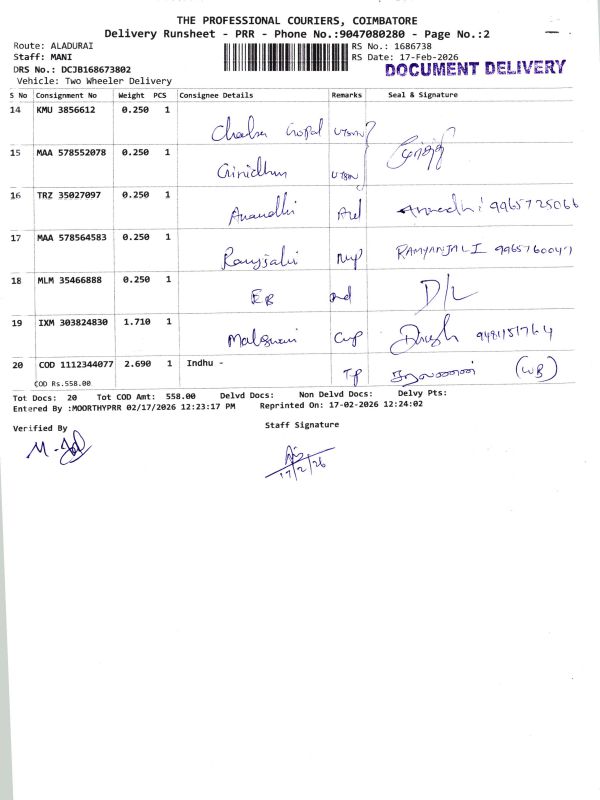 THE PROFESSIONAL COURIERS, COIMBATORE
Delivery Runsheet - PRR - Phone No.:9047080280 - Page No.:2
Route: ALADURAI RS No.: 1686738
Staff: MANI RS Date: 17-Feb-2026
DRS No.: DCJB168673802 DOCUMENT DELIVERY
Vehicle: Two Wheeler Delivery
S No Consignment No Weight PCS Consignee Details Remarks Seal & Signature
14 KMU 3856612 0.250 1 Gopal
15 MAA 578552078 0.250 1
16 TRZ 35027097 0.250 1 Anandhi Anandhi 9965725066
17 MAA 578564583 0.250 1 RAMYANJALI
18 MLM 35466888 0.250 1 EB D/L
19 IXM 303824830 1.710 1
20 COD 1112344077 2.690 1 Indhu - TP சரவணன் (WB)
COD Rs.558.00
Tot Docs: 20 Tot COD Amt: 558.00 Delvd Docs: Non Delvd Docs: Delvy Pts:
Entered By :MOORTHYPRR 02/17/2026 12:23:17 PM Reprinted On: 17-02-2026 12:24:02
Verified By Staff Signature
17/2/26